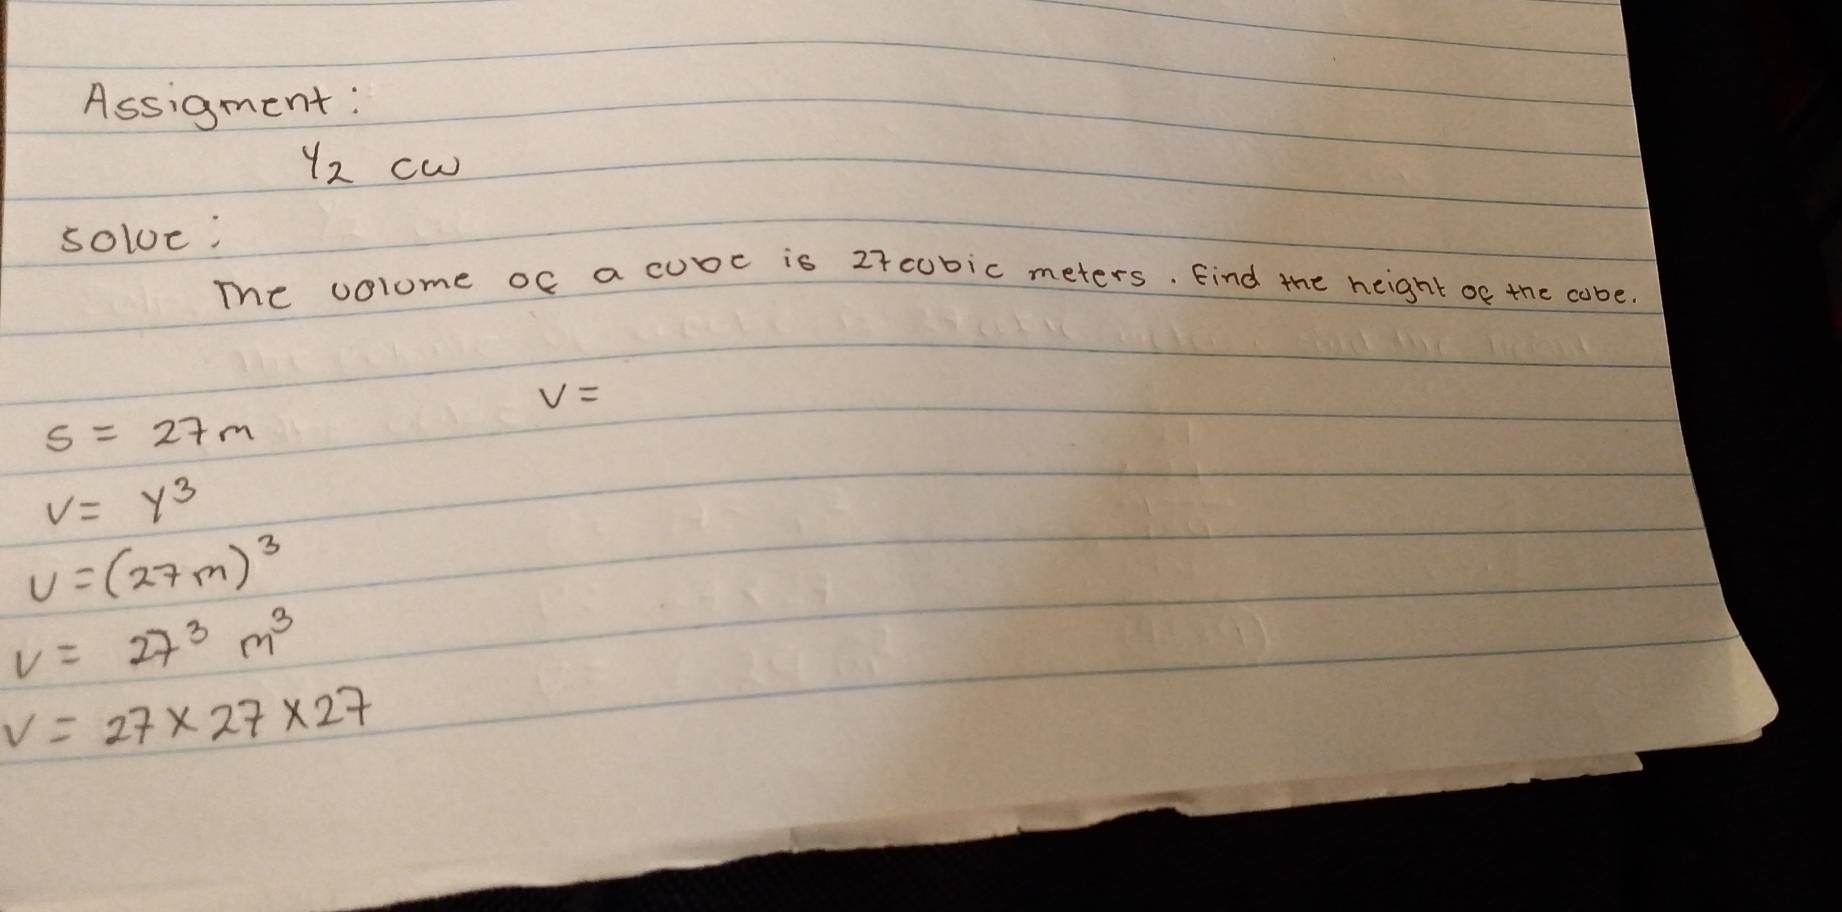 Assigment:
1/2 cw
solve:
The volume of a cube is 27 cubic meters. Find the height of the cube.
V=
S = 27m
V = Y³
V = (27m)³
V = 27³ m³
V = 27 x 27 x 27